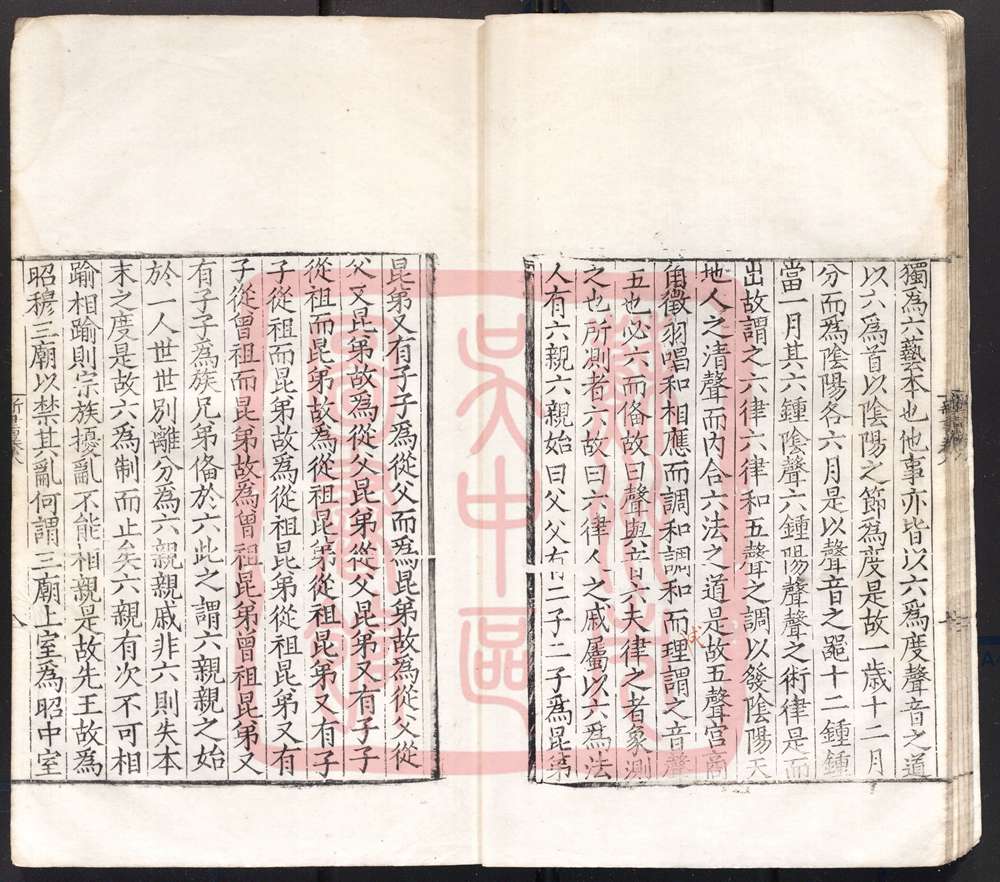 獨爲六藝本也他事亦皆以六爲度聲音之道
以六爲首以陰陽之節爲度是故一歲十二月
分而爲陰陽各六月是以聲音之器十二鍾鍾
當一月其六鍾陰聲六鍾陽聲聲之術律是而
出故謂之六律六律和五聲之調以發陰陽天
地人之清聲而内合六法之道是故五聲宫商
角徵羽唱和相應而調和調和而理謂之音聲
五也必六而備故曰聲與音六夫律之者象測
之也所測者六故曰六律人之戚屬以六爲法
人有六親六親始曰父父有二子二子爲昆弟
昆弟又有子子爲從父而爲昆弟故爲從父從
父又昆弟故爲從父昆弟從父昆弟又有子子
從祖而昆弟故爲從祖昆弟從祖昆弟又有子
子從祖而昆弟故爲從祖昆弟從祖昆弟又有
子從曾祖而昆弟故爲曾祖昆弟曾祖昆弟又
有子子爲族兄弟俻於六此之謂六親親之始
於一人世世别離分爲六親親戚非六則失本
末之度是故六爲制而止矣六親有次不可相
踰相踰則宗族擾亂不能相親是故先王故爲
昭穆三廟以禁其亂何謂三廟上室爲昭中室